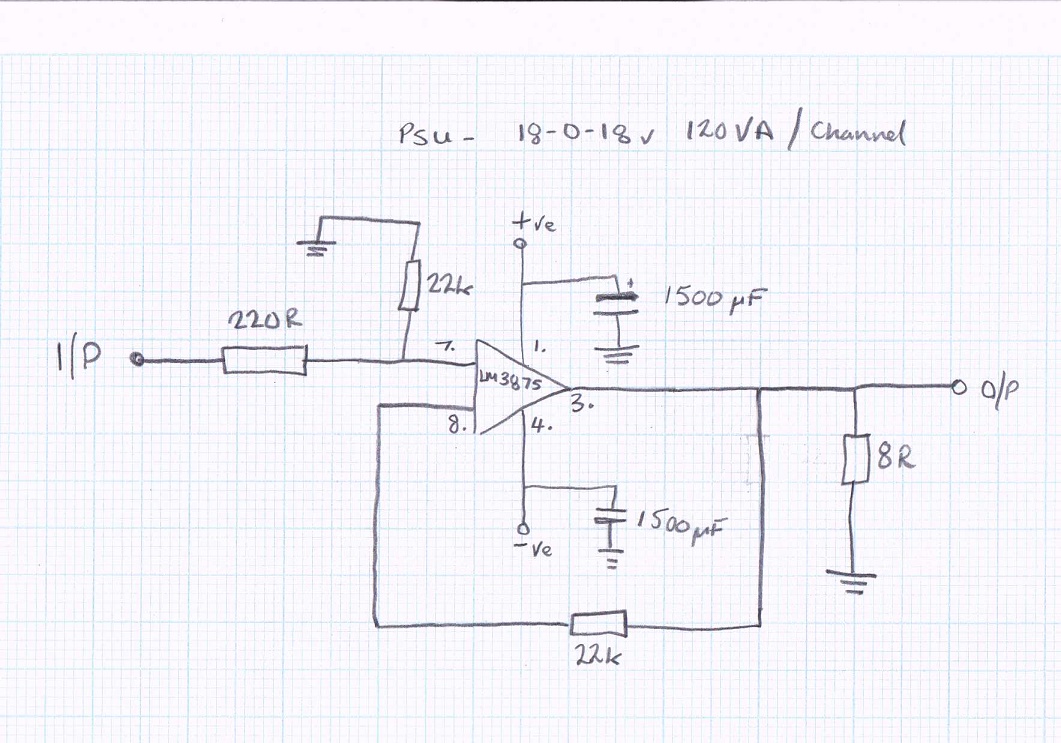 PSU - 18-0-18v 120VA / Channel
+ve
22k
1500µF
+
220R
I/P
7.
1.
LM3875
3.
O/P
8.
4.
8R
1500µF
-ve
22k